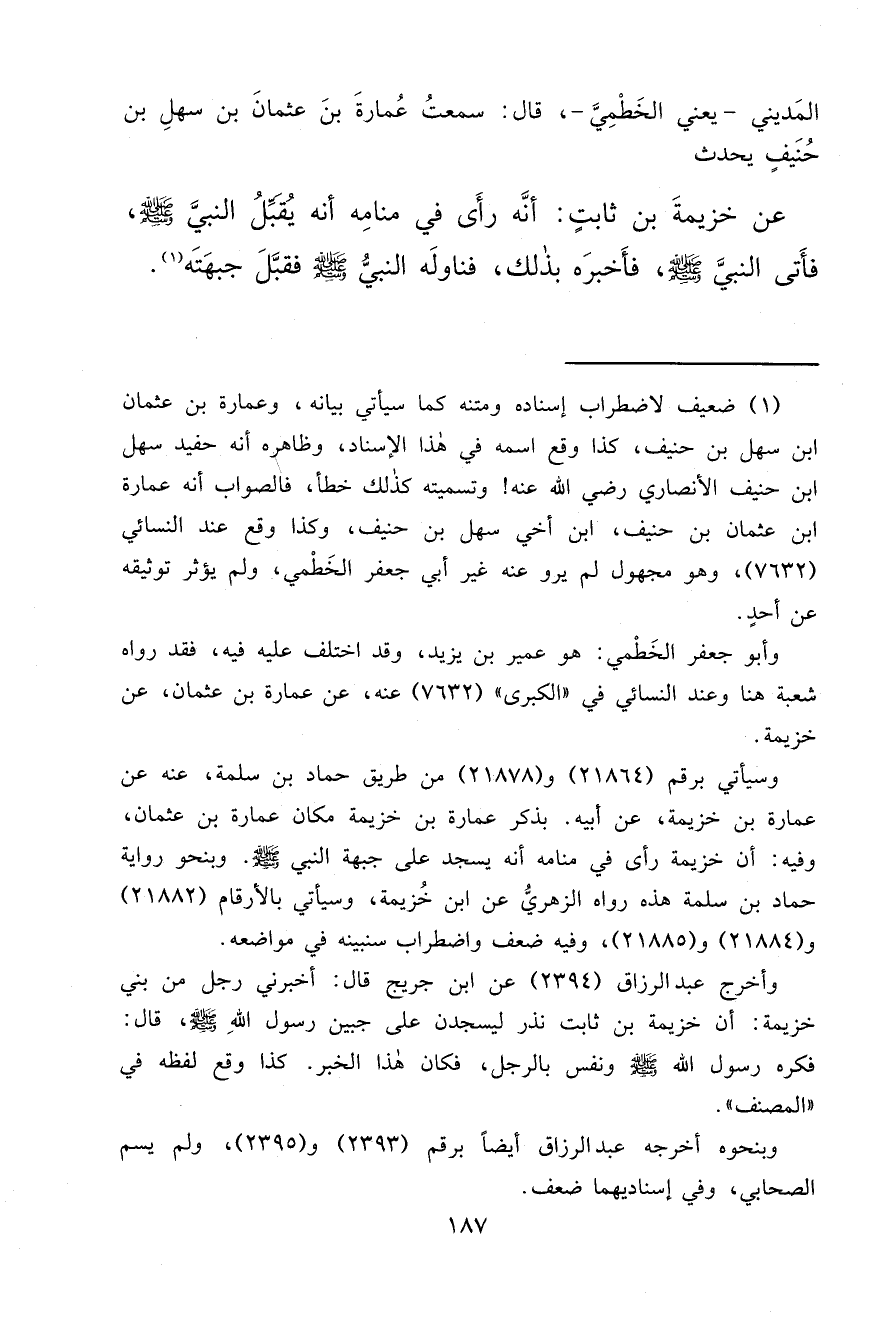 المَديني - يعني الخَطْمِيَّ -، قال: سمعتُ عُمارةَ بنَ عثمانَ بن سهلِ بن
حُنَيفٍ يحدث
عن خزيمةَ بن ثابتٍ: أنَّه رأَى في منامِه أنه يُقبِّلُ النبيَّ ﷺ،
فأَتى النبيَّ ﷺ، فأَخبرَه بذٰلك، فناولَه النبيُّ ﷺ فقبَّلَ جبهَتَه(١).
(١) ضعيف لاضطراب إسناده ومتنه كما سيأتي بيانه، وعمارة بن عثمان
ابن سهل بن حنيف، كذا وقع اسمه في هٰذا الإسناد، وظاهره أنه حفيد سهل
ابن حنيف الأنصاري رضي الله عنه! وتسميته كذٰلك خطأ، فالصواب أنه عمارة
ابن عثمان بن حنيف، ابن أخي سهل بن حنيف، وكذا وقع عند النسائي
(٧٦٣٢)، وهو مجهول لم يرو عنه غير أبي جعفر الخَطْمي، ولم يؤثر توثيقه
عن أحدٍ.
وأبو جعفر الخَطْمي: هو عمير بن يزيد، وقد اختلف عليه فيه، فقد رواه
شعبة هنا وعند النسائي في «الكبرى» (٧٦٣٢) عنه، عن عمارة بن عثمان، عن
خزيمة.
وسيأتي برقم (٢١٨٦٤) و(٢١٨٧٨) من طريق حماد بن سلمة، عنه عن
عمارة بن خزيمة، عن أبيه. بذكر عمارة بن خزيمة مكان عمارة بن عثمان،
وفيه: أن خزيمة رأى في منامه أنه يسجد على جبهة النبي ﷺ. وبنحو رواية
حماد بن سلمة هذه رواه الزهريُّ عن ابن خُزيمة، وسيأتي بالأرقام (٢١٨٨٢)
و(٢١٨٨٤) و(٢١٨٨٥)، وفيه ضعف واضطراب سنبينه في مواضعه.
وأخرج عبد الرزاق (٢٣٩٤) عن ابن جريج قال: أخبرني رجل من بني
خزيمة: أن خزيمة بن ثابت نذر ليسجدن على جبين رسول اللهِ ﷺ، قال:
فكره رسول الله ﷺ ونفس بالرجل، فكان هٰذا الخبر. كذا وقع لفظه في
«المصنف».
وبنحوه أخرجه عبد الرزاق أيضاً برقم (٢٣٩٣) و(٢٣٩٥)، ولم يسم
الصحابي، وفي إسناديهما ضعف.
١٨٧